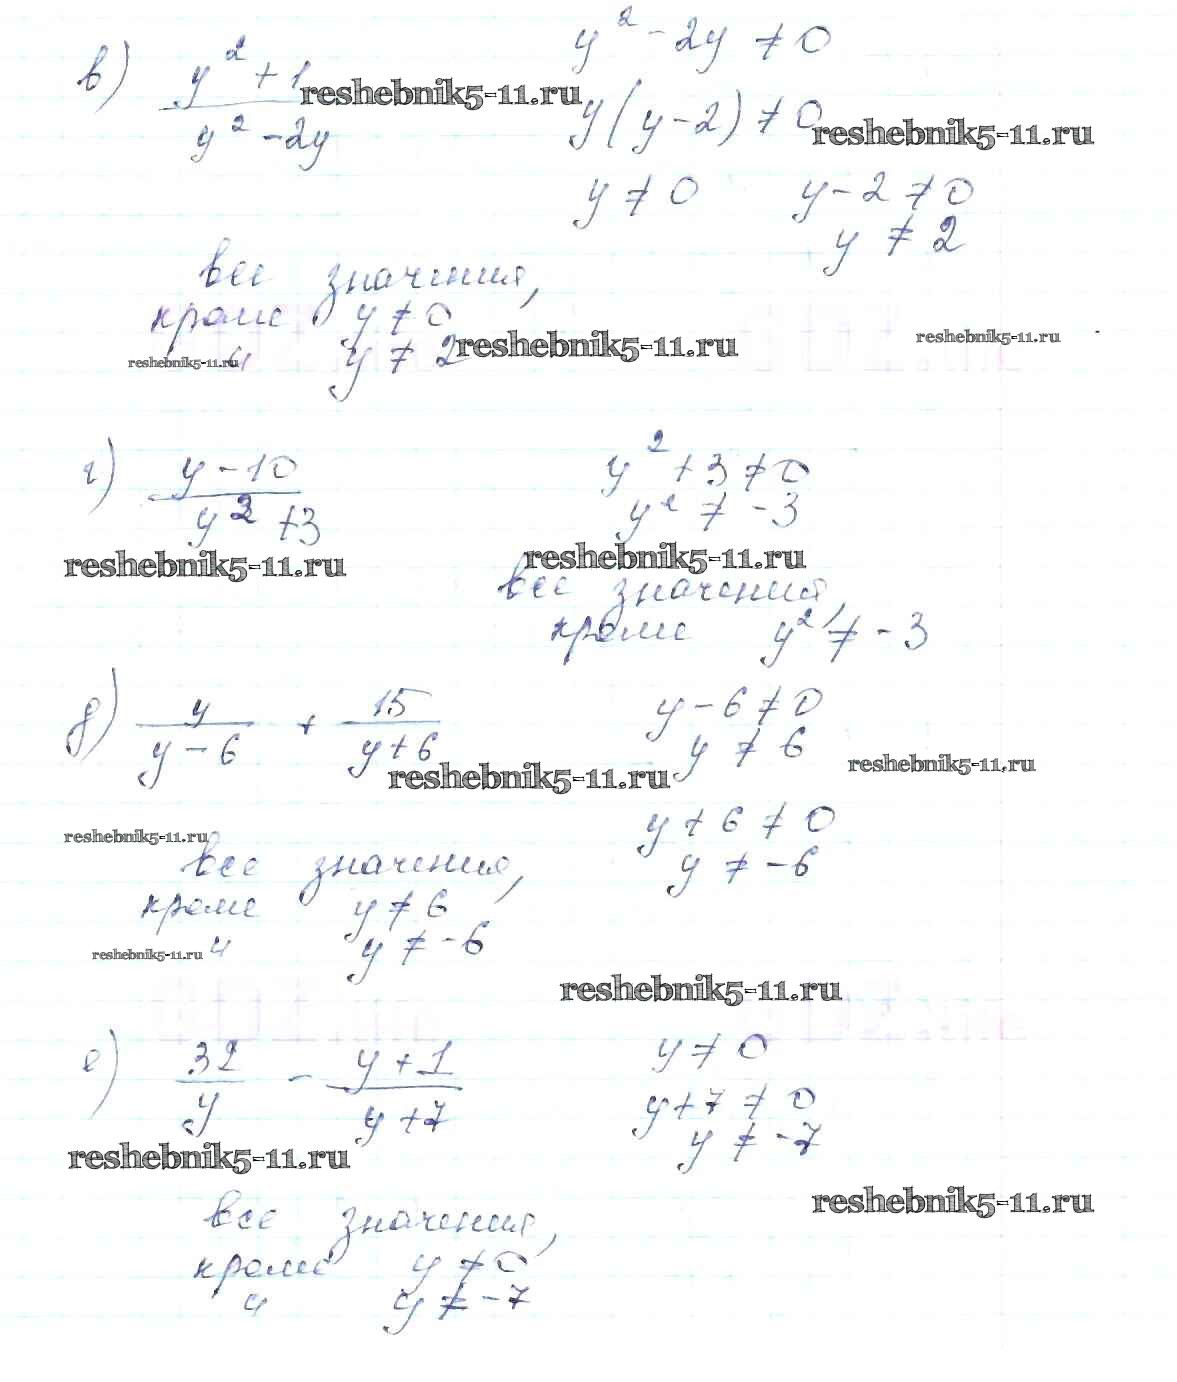 в) y² + 1 / y² - 2y
y² - 2y ≠ 0
reshebnik5-11.ru
y(y-2) ≠ 0
reshebnik5-11.ru
y ≠ 0 y-2 ≠ 0
y ≠ 2
все значения,
кроме y ≠ 0
и y ≠ 2
reshebnik5-11.ru
reshebnik5-11.ru
reshebnik5-11.ru
г) y - 10 / y² + 3
y² + 3 ≠ 0
y² ≠ -3
reshebnik5-11.ru
reshebnik5-11.ru
все значения,
кроме y² ≠ -3
д) y / y - 6 + 15 / y + 6
y - 6 ≠ 0
y ≠ 6
reshebnik5-11.ru
reshebnik5-11.ru
y + 6 ≠ 0
y ≠ -6
reshebnik5-11.ru
все значения,
кроме y ≠ 6
и y ≠ -6
reshebnik5-11.ru
reshebnik5-11.ru
е) 32 / y - y + 1 / y + 7
y ≠ 0
y + 7 ≠ 0
y ≠ -7
reshebnik5-11.ru
reshebnik5-11.ru
все значения,
кроме y ≠ 0
и y ≠ -7